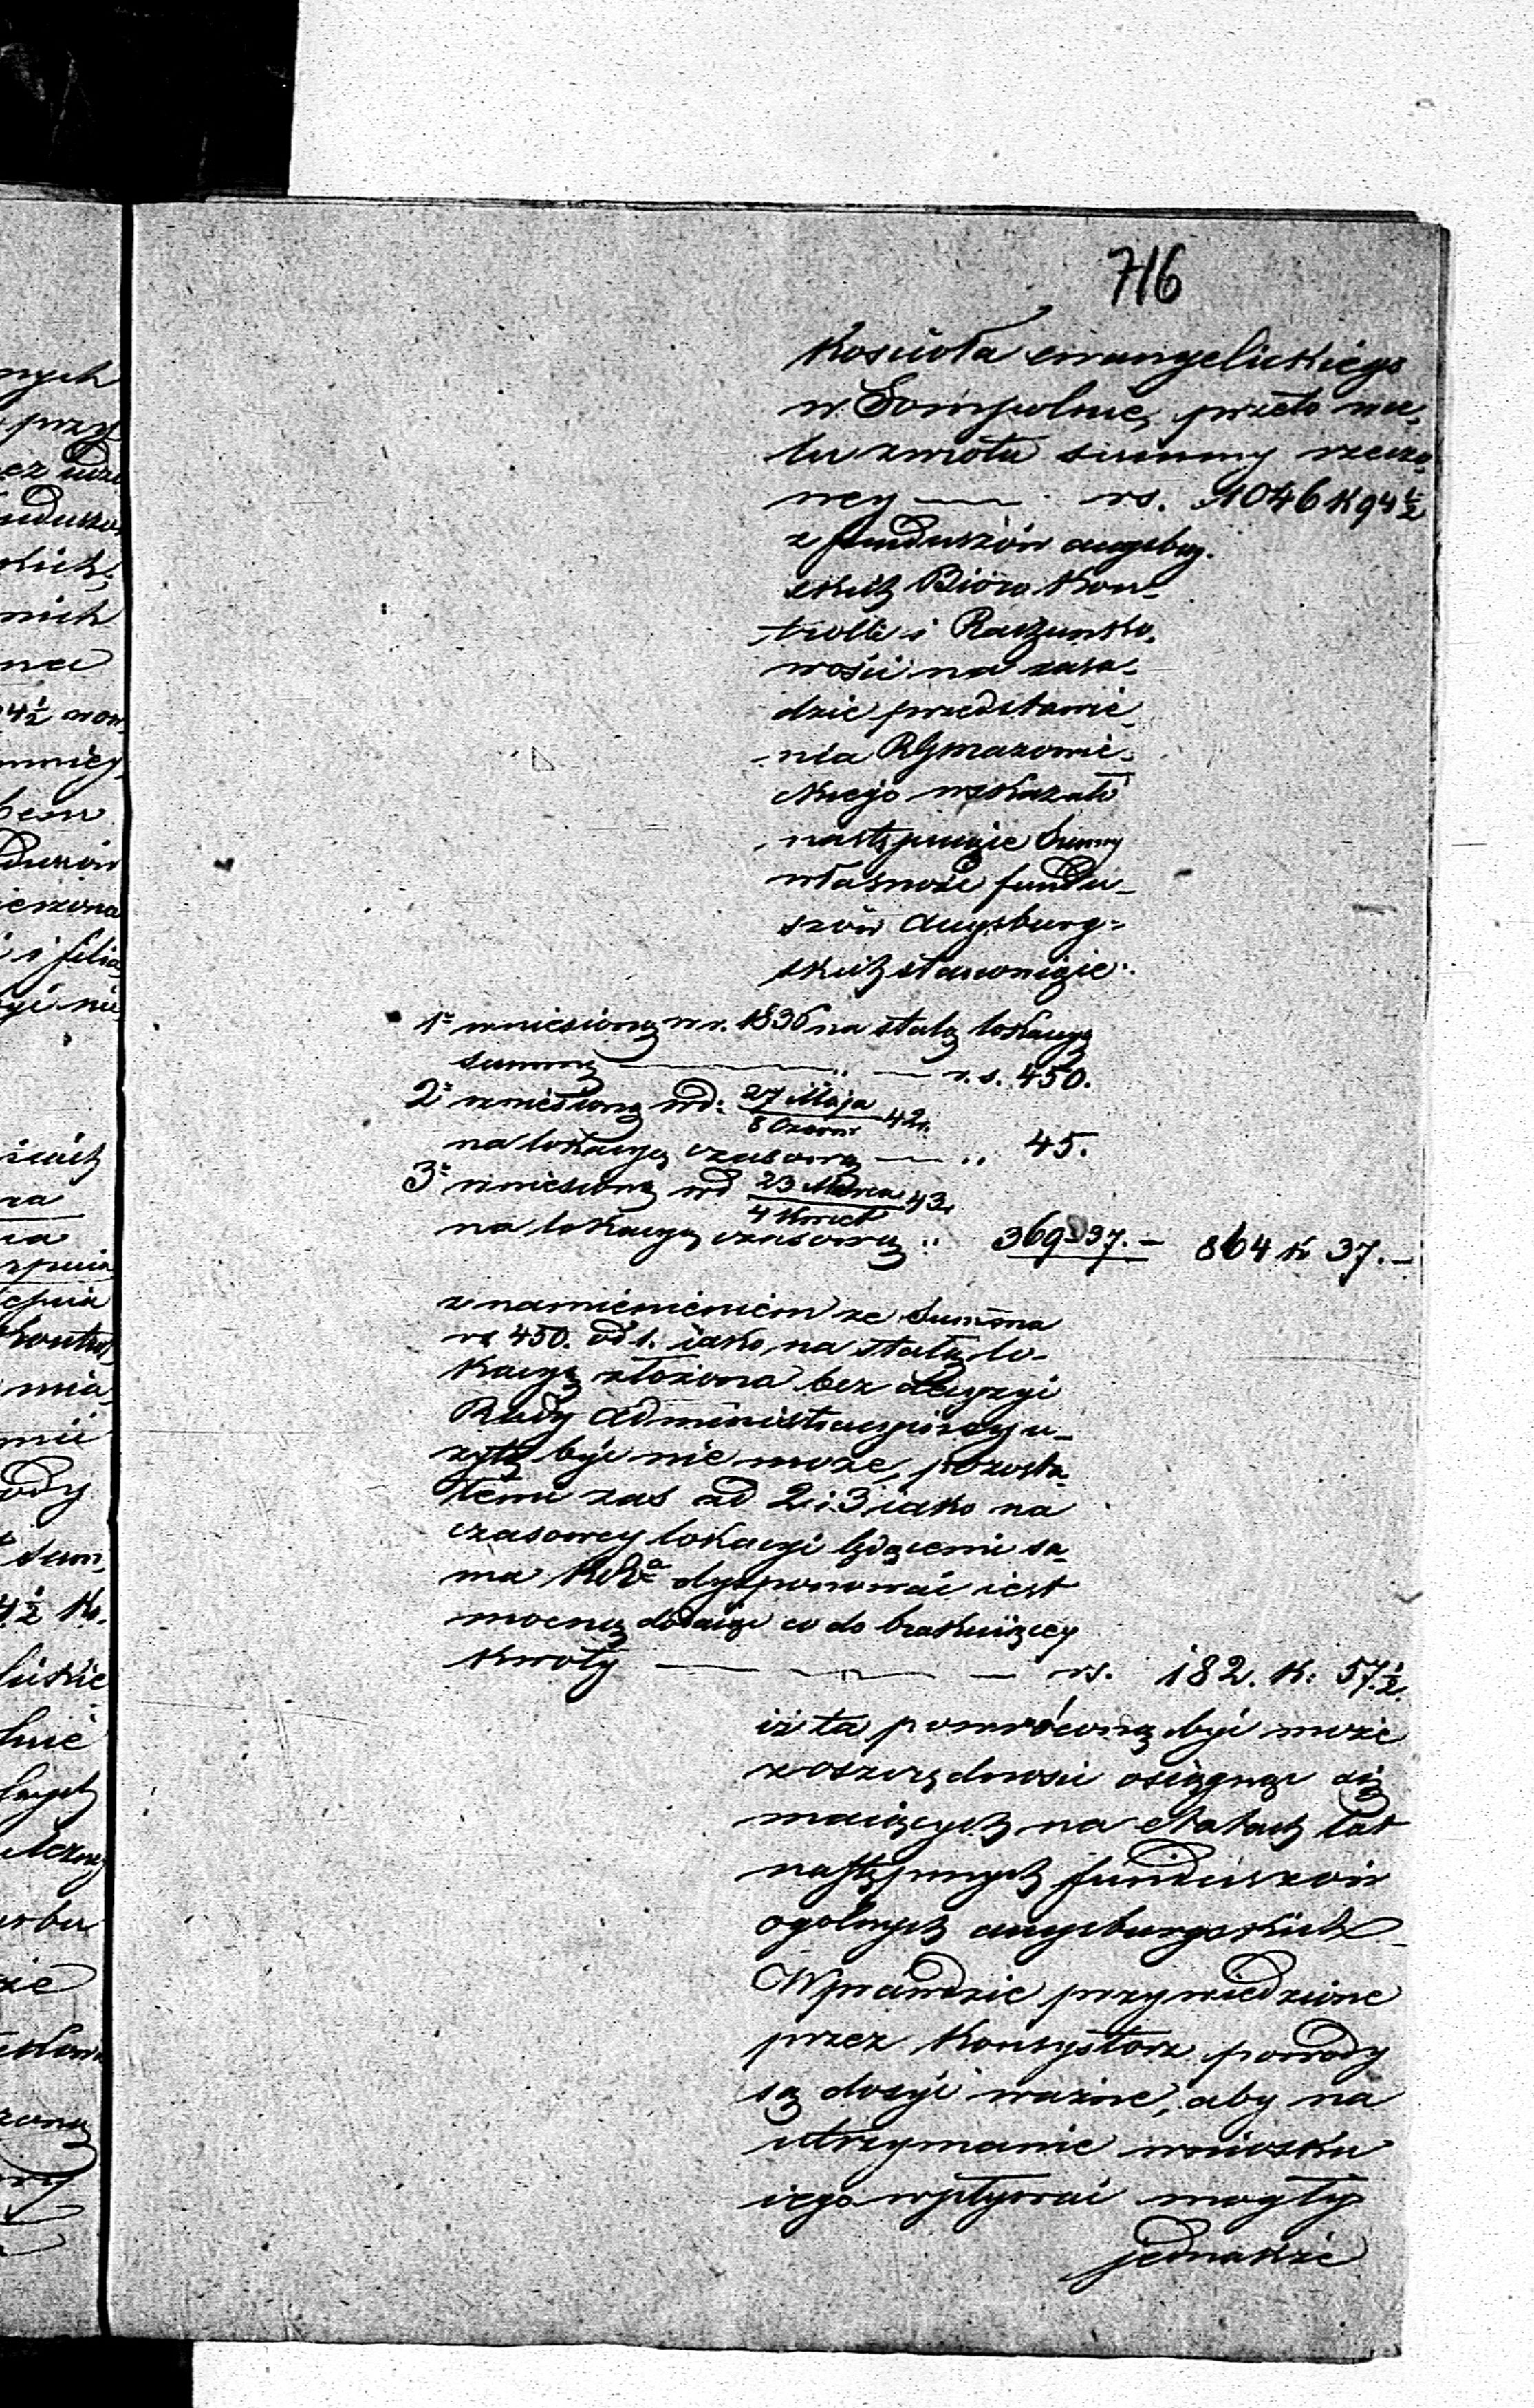 716
Kościoła ewangelickiego
w Sompolnie, przeto we,
lu zwrotu summy rzeczo,
wey — rs. 1046 K 94 ½
z funduszów augsbur.
skich Bióro Kon-
trolli i Rachunko,
wości na zasa-
dzie przedstawie,
nia RGMazowie,
ckiego wskazało
następuiące Summy
własność fundu-
szów Augsburg-
skich stanowiące:
1º wniesioną w r. 1836 na stałą lokacyę
summę — r. s. 450.
2º wniesioną wd: 27 Maja / 8 Czerw 42 r.
na lokacyę czasową — „ 45.
3º wniesioną wd 23 Marca / 4 Kwiet 43 r.
na lokacyę czasową „ 369 - 37. — 864 K 37. —
z namienieniem że Summa
rs 450. od 1. iako na stałą lo-
kacyę złożona bez Decyzyi
Rady Administracyiney u-
żytą być nie może, pozosta-
łemi zaś ad 2 i 3 iako na
czasowey lokacyi będącemi sa-
ma KRª dysponować iest
mocną dodaiąc co do brakuiącey
kwoty — rs. 182. K: 57 ½
iż ta powróconą być może
z oszczędności osiągnąć się
maiących na etatach lat
następnych funduszów
ogólnych augsburgskich —
Wprawdzie przywiedzione
przez Konsystorz powody
są dosyć ważne, aby na
utrzymanie wniosku
iego wpływać mogły
jednakże